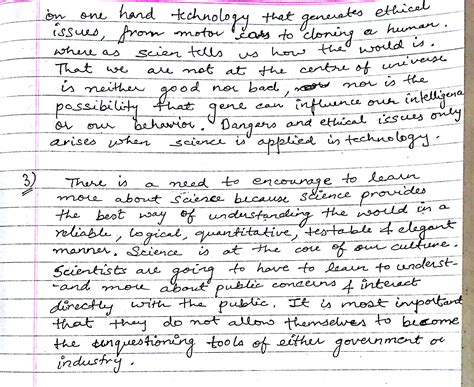 on one hand technology that generates ethical
issues, from motor cars to cloning a human.
where as scien tells us how the world is.
That we are not at the centre of universe
is neither good nor bad, nor is the
possibility that gene can influence our intelligena
or our behavior. Dangers and ethical issues only
arises when science is applied in technology.
3) There is a need to encourage to learn
more about science because science provides
the best way of understanding the world in a
reliable, logical, quantitative, testable & elegant
manner. Science is at the core of our culture.
Scientists are going to have to learn to underst-
-and more about public concerns & interact
directly with the public. It is most important
that they do not allow themselves to become
the unquestioning tools of either government or
industry.